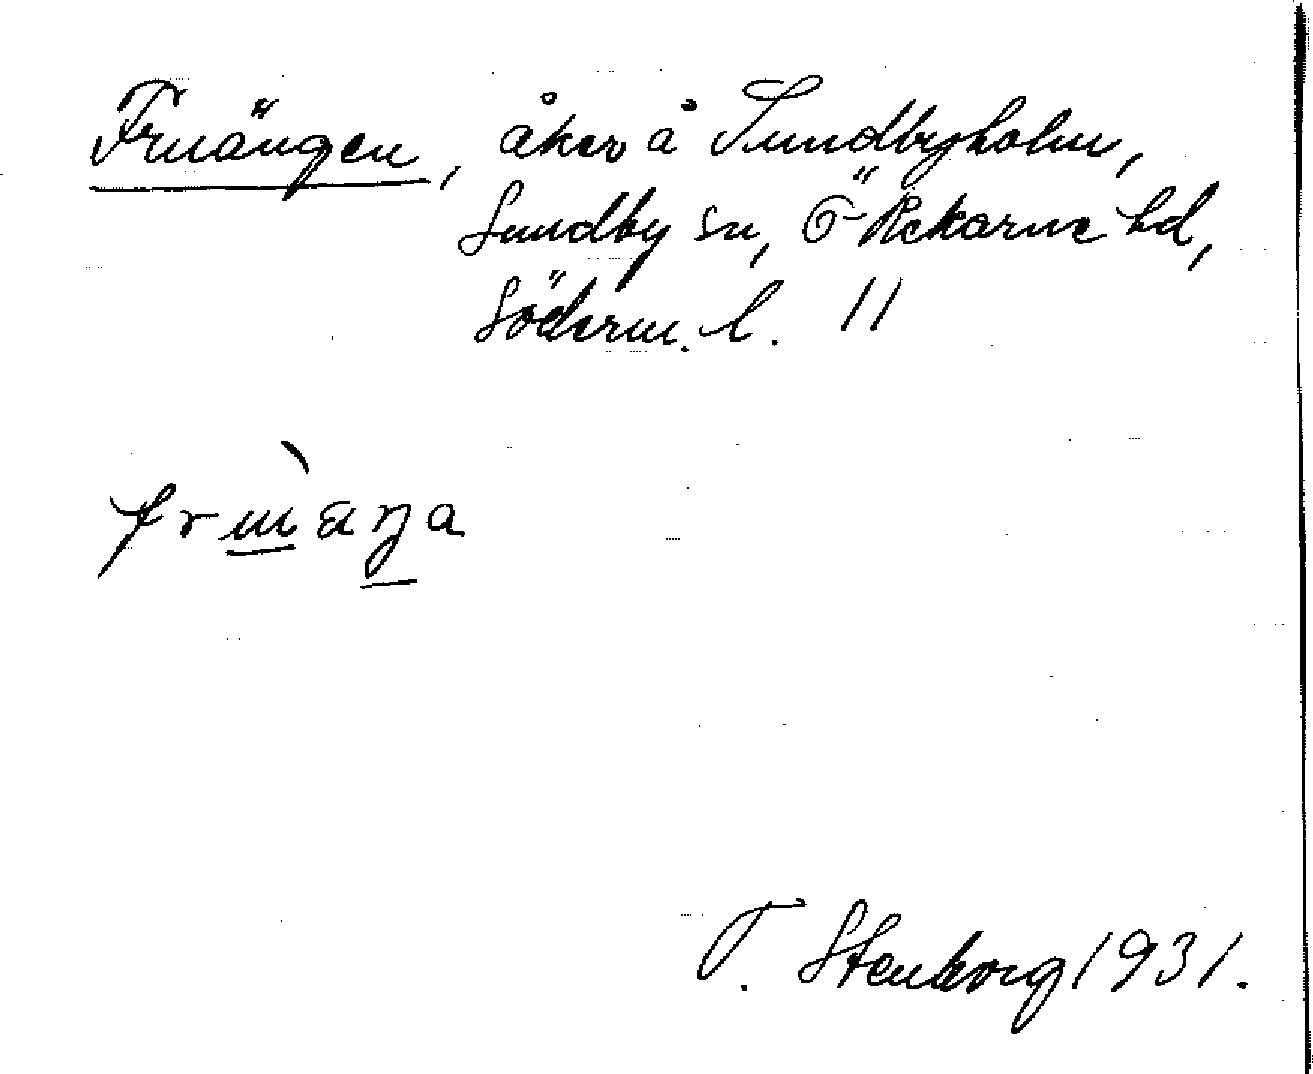 Fruängen, åker å Sundbyholm,
Sundby sn, Ö-Rekarne hd,
Söderm. l. 11
frùäŋa
E. Stenborg 1931.